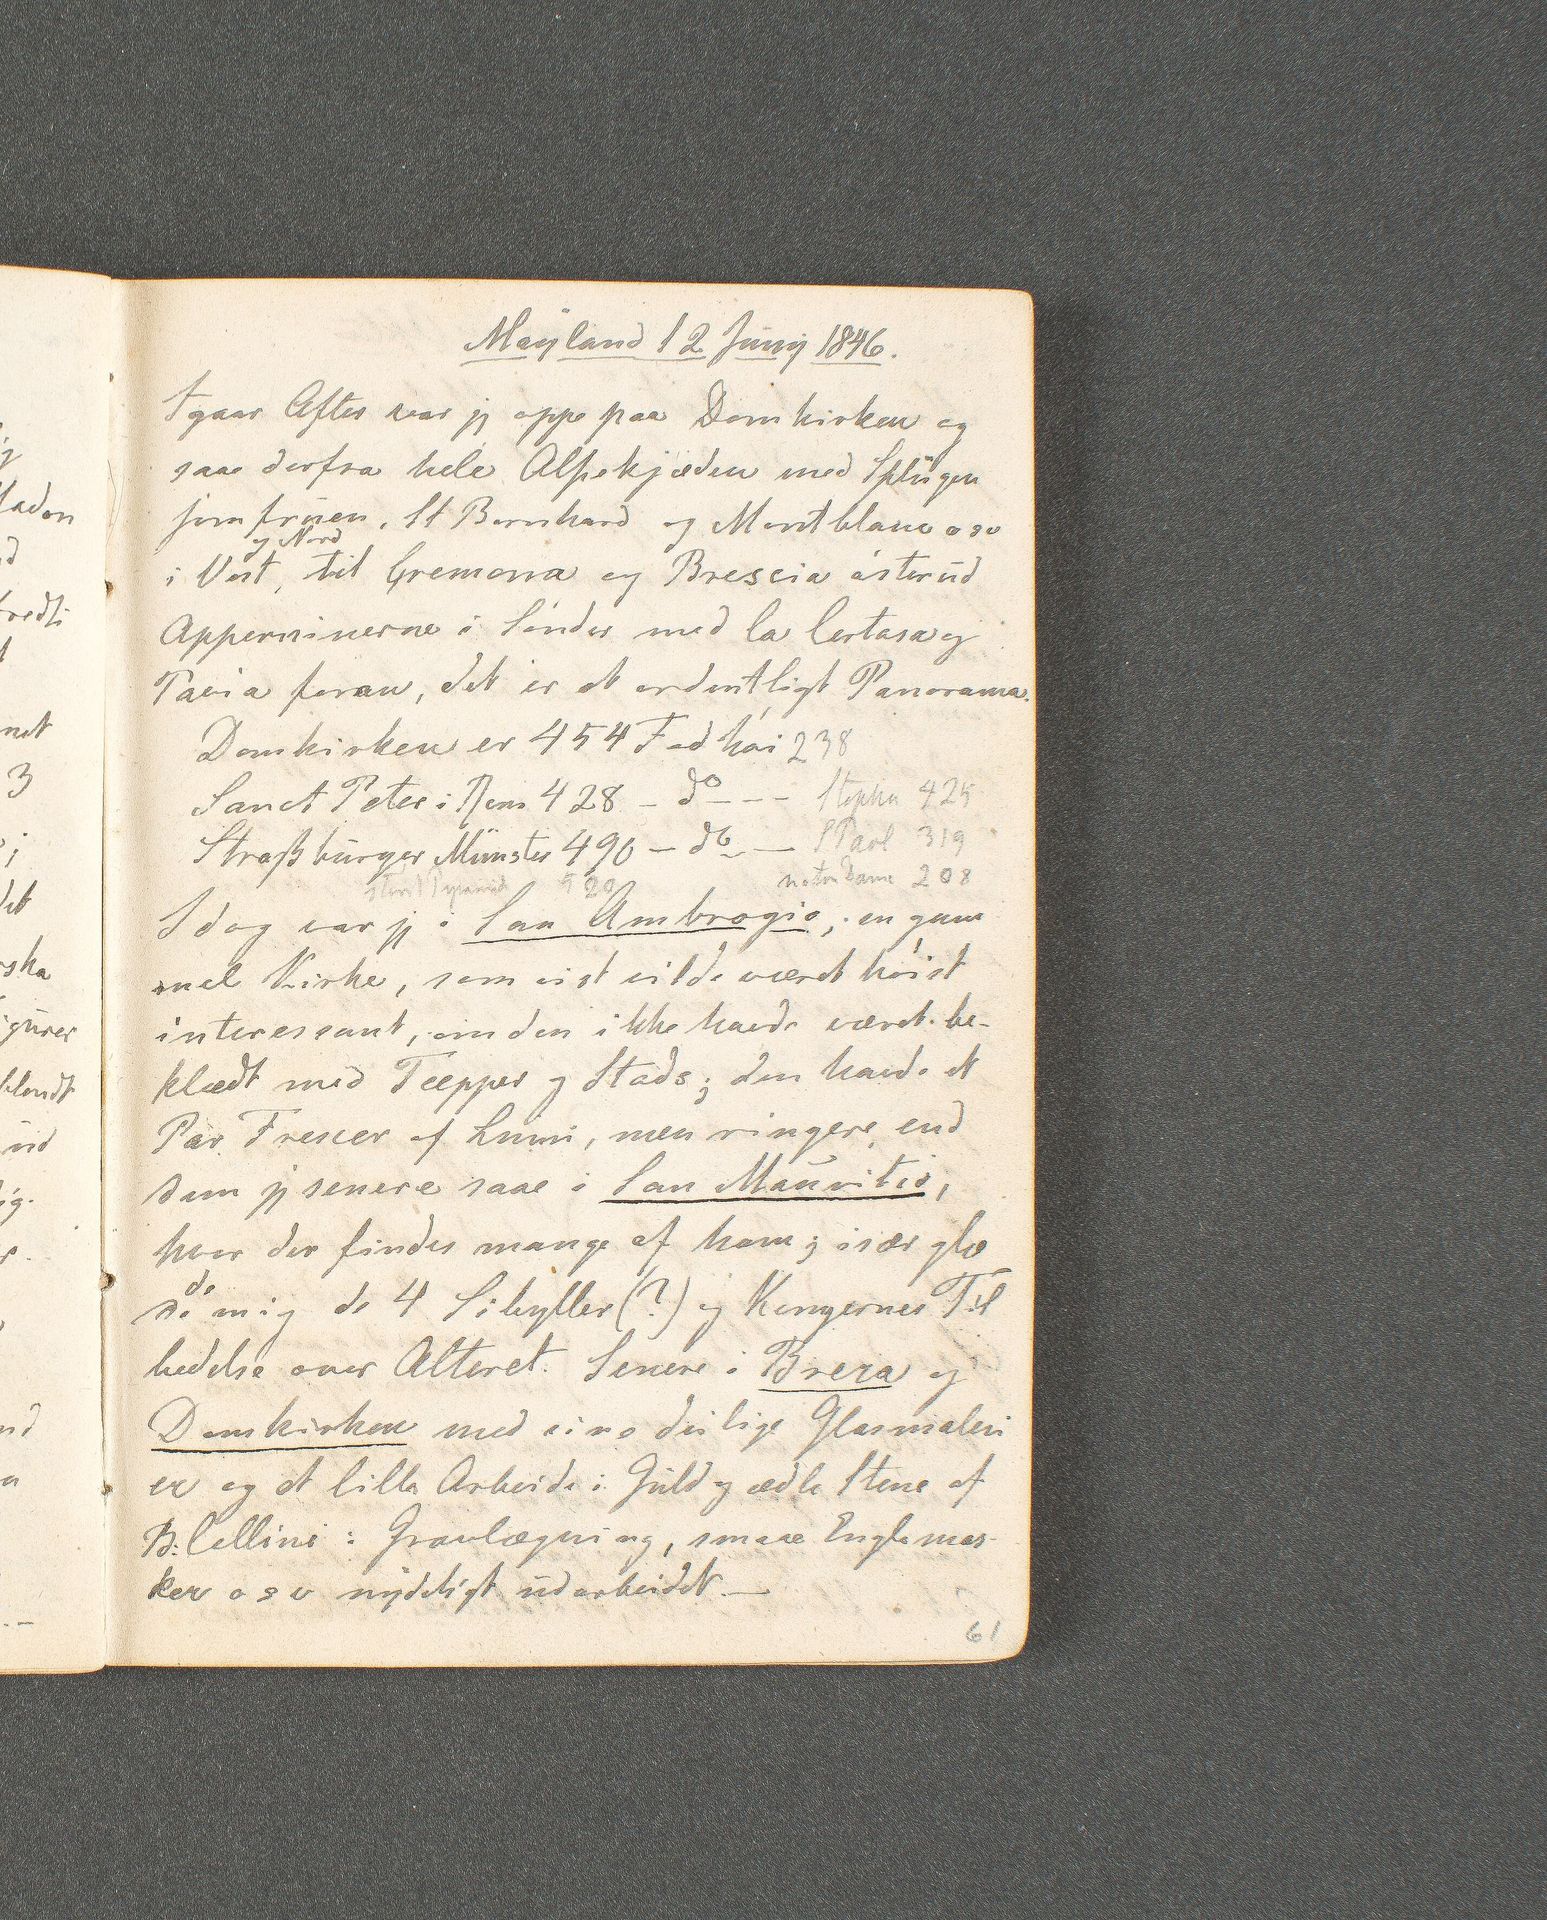 Mayland 12 Junij 1846.
Igaar Aften var jg oppe paa Domkirken og
saae derfra hele Alpekjæden med Splügen
jomfruen, St Bernhard og Montblanc osv
og Nord
i Vest, til Cremona og Brescia øster ud
Apperninerne i Sønder med la Certosa og
Pavia foran, det er et ordentligt Panorama.
Domkirken er 454 Fod høi 238
Sanct Peter i Rom 428 – do – – – Stephan 425
Straßburger Münster 490 – do – – S Paol 319
størst Pyramid 520 notre Dame 208
I dag var jg i San Ambrogio, en gam
mel Kirke, som vist vilde været høist
interessant, om den ikke havde været be-
klædt med Tæpper og Stads; den havde et
Par Frescer af Luini, men ringere end
dem jg senere saae i San Mauritio,
hvor der findes mange af ham; især glæ
de
mig de 4 Sibyller (?) og Kongernes Til
bedelse over Alteret. Senere i Brera og
Domkirken med sine deilige Glasmaleri
er og et lille Arbeide i Guld og ædle Stene af
B: Cellini : Gravlægning, smaae Englemas-
ker osv nydeligt udarbeidet. —
61
net
3
det
ska
igurer
blandt
ud
ig.